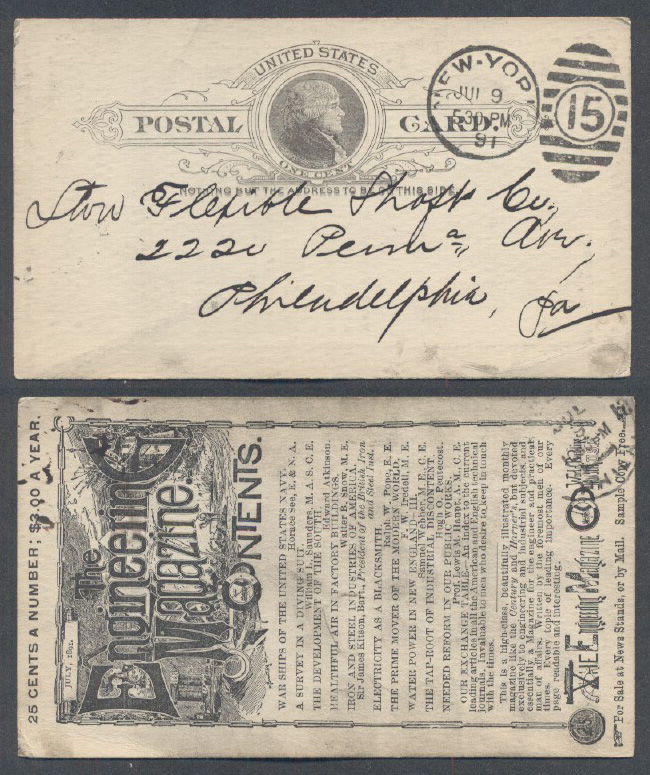 UNITED STATES
POSTAL CARD.
ONE CENT
NOTHING BUT THE ADDRESS TO BE ON THIS SIDE
NEW-YORK
JUL 9
530 PM
91
15
Stow Flexible Shaft Co.,
2220 Penn'a Ave.,
Philadelphia, Pa
25 CENTS A NUMBER; $3.00 A YEAR.
JULY, 1891.
The
Engineering
Magazine.
CONTENTS.
WAR SHIPS OF THE UNITED STATES NAVY.
Horace See, E. & N. A.
A SURVEY IN A DIVING SUIT.
William L. Saunders, M. A. S. C. E.
THE DEVELOPMENT OF THE SOUTH.
Edward Atkinson.
HEALTHFUL AIR IN FACTORY BUILDINGS.
Walter B. Snow, M. E.
IRON AND STEEL INDUSTRIES OF AMERICA.
Sir James Kitson, Bart., President of the British Iron
and Steel Inst.
ELECTRICITY AS A BLACKSMITH.
Ralph W. Pope, E. E.
THE PRIME MOVER OF THE MODERN WORLD.
F. W. Iredell, M. E.
WATER POWER IN NEW ENGLAND—III.
C. E.
THE TAP-ROOT OF INDUSTRIAL DISCONTENT.
Hugh O. Pentecost.
NEEDED REFORM IN OUR PUBLIC WORKS.
Prof. Lewis M. Haupt, A. M., C. E.
OUR EXCHANGE TABLE: An Index to the current
leading articles in all the American and English technical
journals. Invaluable to men who desire to keep in touch
with the times.
This is a high-class, beautifully illustrated monthly
magazine like the Century and Harper's, but devoted
exclusively to engineering and industrial subjects, and
essentially a Magazine for the engineer and practical
man of affairs. Written by the foremost men of our
times. Every topic of leading importance. Every
page readable and interesting.
THE Engineering Magazine Co
For Sale at News Stands, or by Mail. Sample Copy Free.